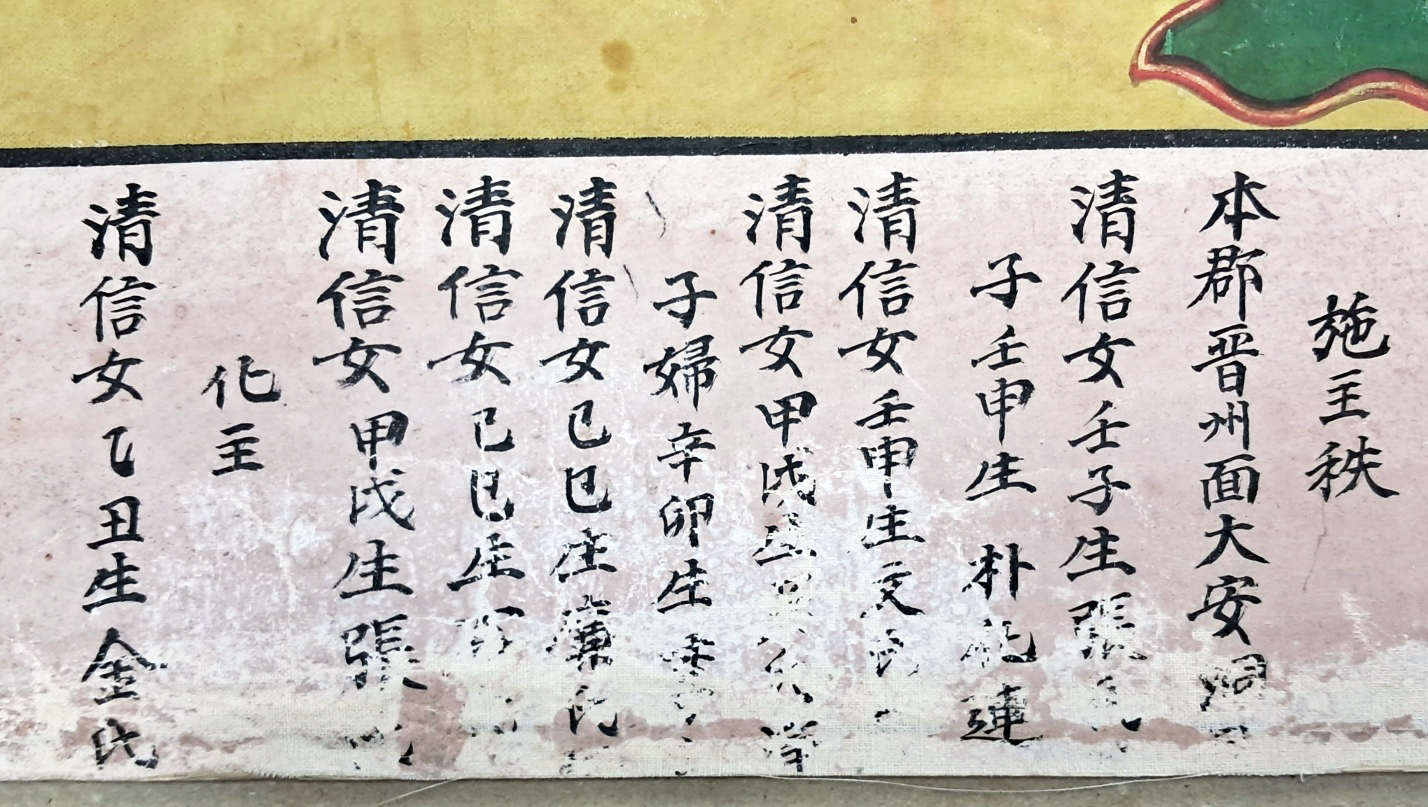 施主秩
本郡晋州面大安洞
清信女壬子生張氏
子壬申生 朴 連
清信女壬申生文氏
清信女甲戌生
子婦辛卯生
清信女己巳生 氏
清信女己巳生
清信女甲戌生張氏
化主
清信女乙丑生金氏